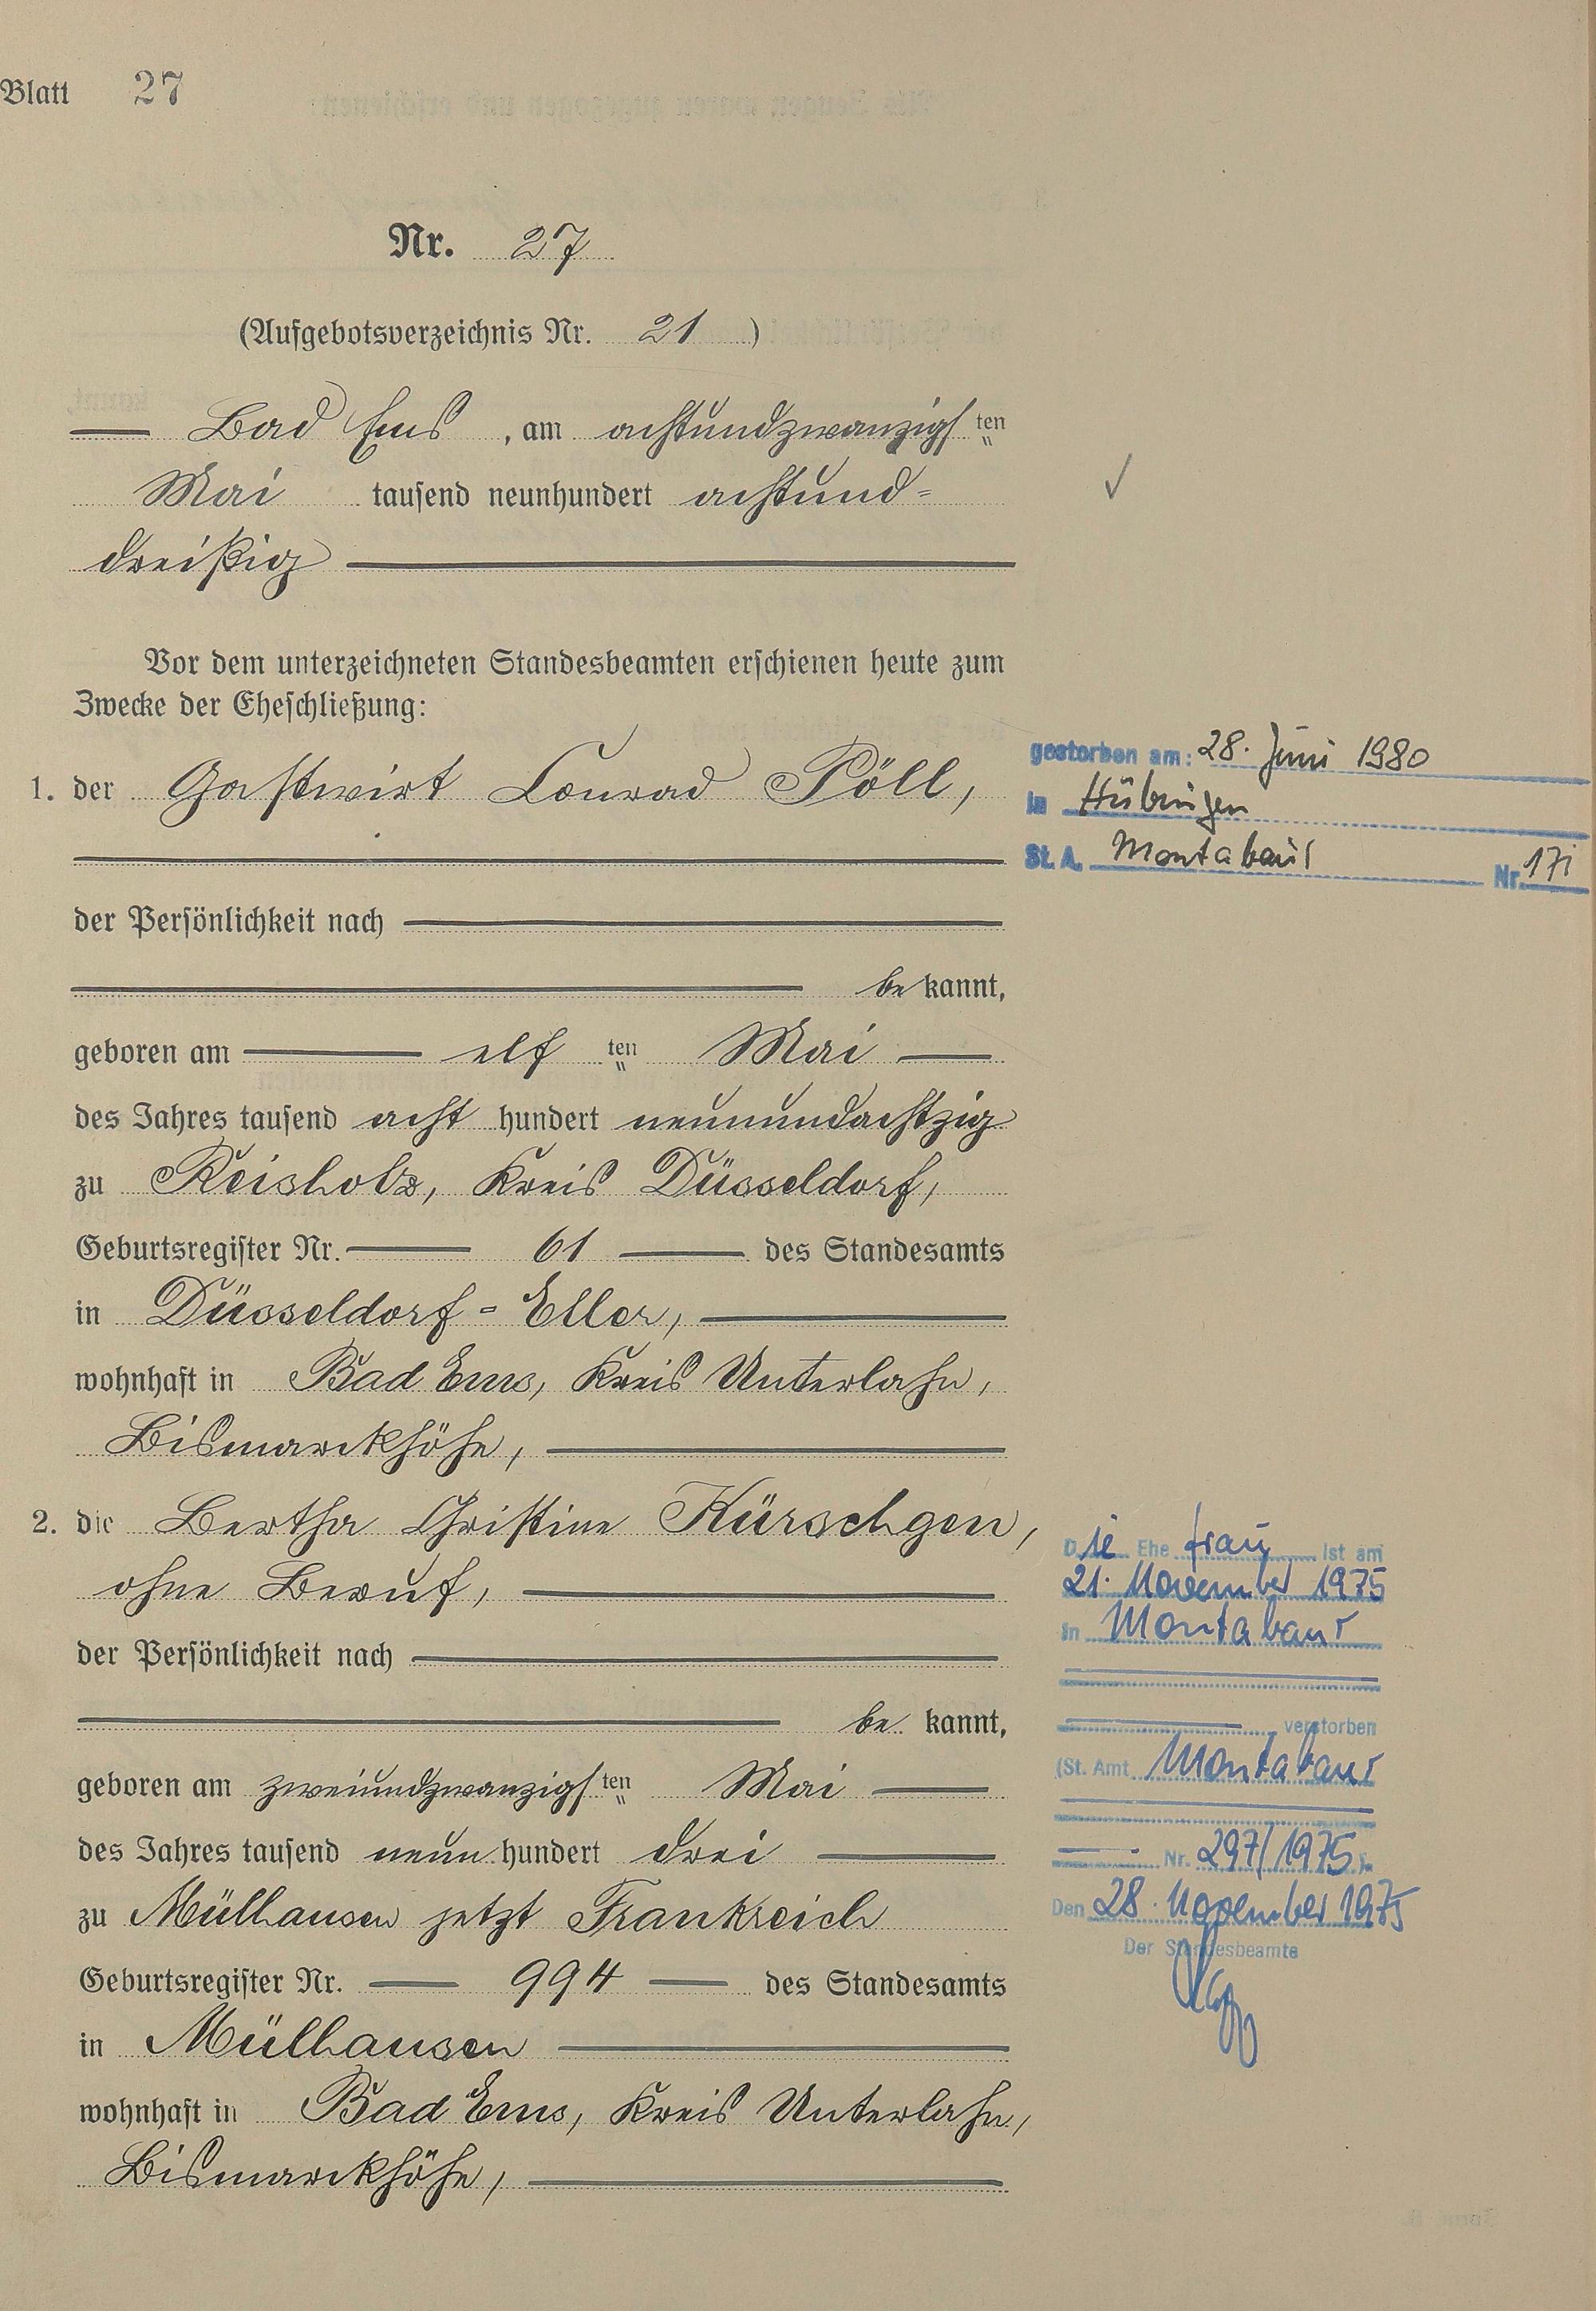 Blatt 27
Nr. 27
(Aufgebotsverzeichnis Nr. 21 )
Bad Ems , am achtundzwanzigs ten
Mai tausend neunhundert achtund=
dreißig
Vor dem unterzeichneten Standesbeamten erschienen heute zum
Zwecke der Eheschließung:
1. der Gastwirt Conrad Pöll,
der Persönlichkeit nach
be kannt,
geboren am elf ten Mai
des Jahres tausend acht hundert neunundachtzig
zu Reisholz, Kreis Düsseldorf,
Geburtsregister Nr. 61 des Standesamts
in Düsseldorf=Eller,
wohnhaft in Bad Ems, Kreis Unterlahn,
Bismarckhöhe,
2. die Bertha Christine Kürschgen,
ohne Beruf,
der Persönlichkeit nach
be kannt,
geboren am zweiundzwanzigs ten Mai
des Jahres tausend neun hundert drei
zu Mülhausen jetzt Frankreich
Geburtsregister Nr. 994 des Standesamts
in Mülhausen
wohnhaft in Bad Ems, Kreis Unterlahn,
Bismarckhöhe,
gestorben am: 28. Juni 1980
in Hübingen
St. A. Montabaur Nr. 171
Die Ehe frau ist am
21. November 1975
in Montabaur
verstorben
(St. Amt Montabaur
Nr. 297/1975 ).
Den 28. November 1975
Der Standesbeamte